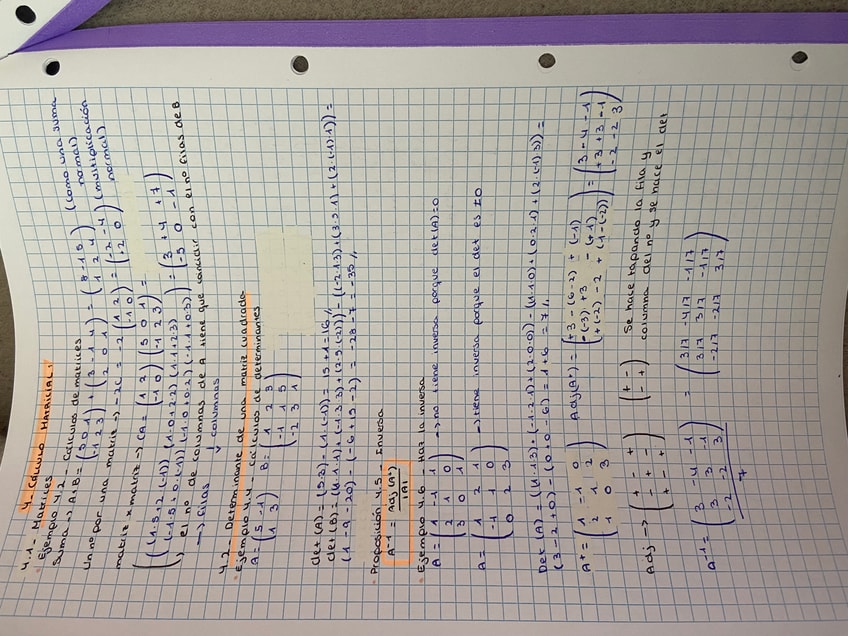 4- CÁLCULO MATRICIAL:
4.1- Matrices
· Ejemplo 4.2 - Cálculos de matrices
Suma → A+B = (5 0 1 / -1 2 3) + (3 -1 4 / 2 0 1) = (8 -1 5 / 1 2 4) (como una suma normal)
Un nº por una matriz → -2C = -2 (1 2 / -1 0) = (-2 -4 / +2 0) (multiplicación normal)
matriz x matriz → CA = (1 2 / -1 0) (5 0 1 / -1 2 3) =
((1·5+2·(-1)) (1·0+2·2) (1·1+2·3) / (-1·5+0·(-1)) (-1·0+0·2) (-1·1+0·3)) = (3 +4 +7 / -5 0 -1)
, el nº de columnas de A tiene que coincidir con el nº filas de B
→ filas ↓ columnas
4.2- Determinante de una matriz cuadrada
· Ejemplo 4.4 - cálculos de determinantes
A = (5 -1 / 1 3) B = (1 2 3 / -1 1 5 / -2 3 1)
det (A) = (5·3) - (1·(-1)) = 15+1 = 16//
det (B) = (1·1·1) + (-1·3·3) + (2·5·(-2)) - ((-2·1·3) + (3·5·1) + (2·(-1)·1)) =
(1 -9 -20) - (-6 +15 -2) = -28 -7 = -35//
· Proposición 4.5 - Inversa
A⁻¹ = Adj (Aᵗ) / |A|
· Ejemplo 4.6 - Haz la inversa
A = (1 -1 1 / 1 2 0 / 3 0 1) → no tiene inversa porque det(A)=0
A = (1 2 1 / -1 1 0 / 0 2 3) → tiene inversa porque el det es ≠0
Det (A) = (1·1·3) + (-1·2·1) + (2·0·0) - (1·1·0) + (0·2·1) + (2·(-1)·3)) =
(3 -2 +0) - (0 +0 -6) = 1+6 = 7//
Aᵗ = (1 -1 0 / 2 1 2 / 1 0 3) Adj (Aᵗ) = (+3 -(6-2) +(-1) / -(-3) +3 -(+1) / +(-2) -2 +(1-(-2))) = (3 -4 -1 / +3 +3 -1 / -2 -2 3)
Adj → (+ - + / - + - / + - +) (+ - / - +) Se hace tapando la fila y
columna del nº y se hace el det
A⁻¹ = (3 -4 -1 / 3 3 -1 / -2 -2 3) / 7 = (3/7 -4/7 -1/7 / 3/7 3/7 -1/7 / -2/7 -2/7 3/7)